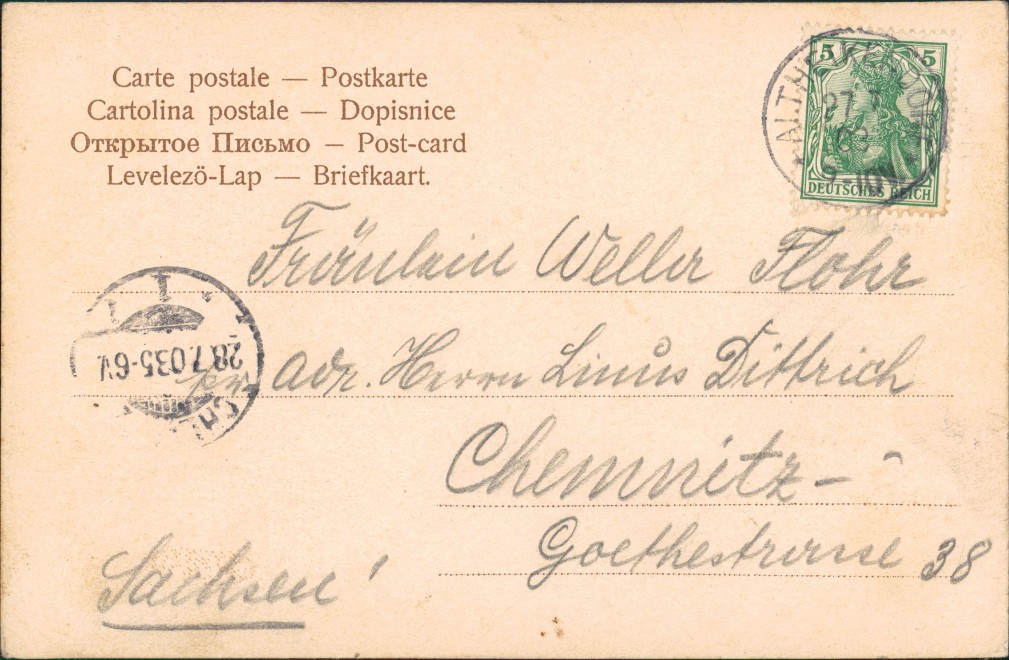 Carte postale — Postkarte
Cartolina postale — Dopisnice
Открытое Письмо — Post-card
Levelező-Lap — Briefkaart.
5 5
DEUTSCHES REICH
Fräulein Weller Flohr
pr. Adr. Herrn Linus Dittrich
Chemnitz-
Goethestrasse 38
Sachsen!
28.7.03 5-6V.